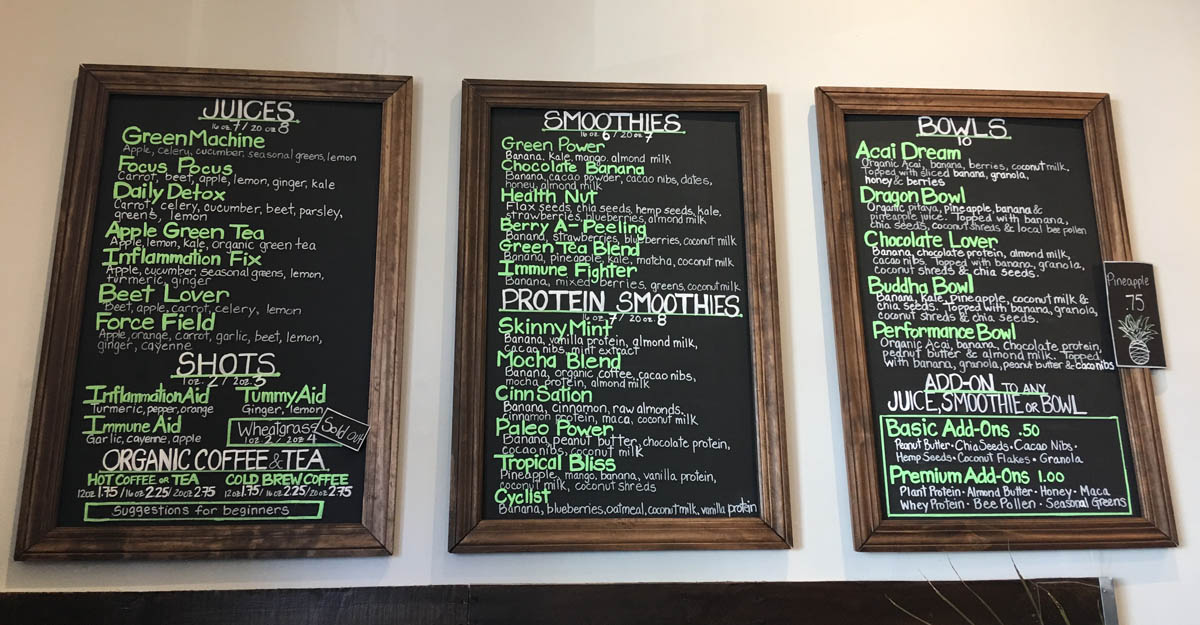 JUICES
16 oz. 7 / 20 oz 8
Green Machine
Apple, celery, cucumber, seasonal greens, lemon
Focus Pocus
Carrot, beet, apple, lemon, ginger, kale
Daily Detox
Carrot, celery, cucumber, beet, parsley,
greens, lemon
Apple Green Tea
Apple, lemon, kale, organic green tea
Inflammation Fix
Apple, cucumber, seasonal greens, lemon,
turmeric, ginger
Beet Lover
Beet, apple, carrot, celery, lemon
Force Field
Apple, orange, carrot, garlic, beet, lemon,
ginger, cayenne
SHOTS
1 oz. 2 / 2 oz. 3
Inflammation Aid
Turmeric, pepper, orange
Tummy Aid
Ginger, lemon
Immune Aid
Garlic, cayenne, apple
Wheatgrass
1 oz. 2 / 2 oz. 4
Sold Out!
ORGANIC COFFEE & TEA
HOT COFFEE OR TEA
12oz 1.75 / 16 oz 2.25 / 20oz 2.75
COLD BREW COFFEE
12oz 1.75 / 16 oz 2.25 / 20oz 2.75
Suggestions for beginners
SMOOTHIES
16 oz 6 / 20 oz 7
Green Power
Banana, kale, mango, almond milk
Chocolate Banana
Banana, cacao powder, cacao nibs, dates,
honey, almond milk
Health Nut
Flax seeds, chia seeds, hemp seeds, kale,
strawberries, blueberries, almond milk
Berry A-Peeling
Banana, strawberries, blueberries, coconut milk
Green Tea Blend
Banana, pineapple, kale, matcha, coconut milk
Immune Fighter
Banana, mixed berries, greens, coconut milk
PROTEIN SMOOTHIES
16 oz. 7 / 20 oz. 8
Skinny Mint
Banana, vanilla protein, almond milk,
cacao nibs, mint extract
Mocha Blend
Banana, organic coffee, cacao nibs,
mocha protein, almond milk
Cinn Sation
Banana, cinnamon, raw almonds,
cinnamon protein, maca, coconut milk
Paleo Power
Banana, peanut butter, chocolate protein,
cacao nibs, coconut milk
Tropical Bliss
Pineapple, mango, banana, vanilla protein,
coconut milk, coconut shreds
Cyclist
Banana, blueberries, oatmeal, coconut milk, vanilla protein
BOWLS
10
Acai Dream
Organic Acai, banana, berries, coconut milk,
Topped with sliced banana, granola,
honey & berries
Dragon Bowl
Organic pitaya, pineapple, banana &
pineapple juice. Topped with banana,
chia seeds, coconut shreds & local bee pollen
Chocolate Lover
Banana, chocolate protein, almond milk,
cacao nibs. Topped with banana, granola,
coconut shreds & chia seeds.
Buddha Bowl
Banana, kale, pineapple, coconut milk &
chia seeds. Topped with banana, granola,
coconut shreds & chia seeds.
Performance Bowl
Organic Acai, banana, Chocolate protein,
peanut butter & almond milk. Topped
with banana, granola, peanut butter & cacao nibs
Pineapple
75
ADD-ON TO ANY
JUICE, SMOOTHIE OR BOWL
Basic Add-Ons .50
Peanut Butter • Chia Seeds • Cacao Nibs •
Hemp Seeds • Coconut Flakes • Granola
Premium Add-Ons 1.00
Plant Protein • Almond Butter • Honey • Maca
Whey Protein • Bee Pollen • Seasonal Greens